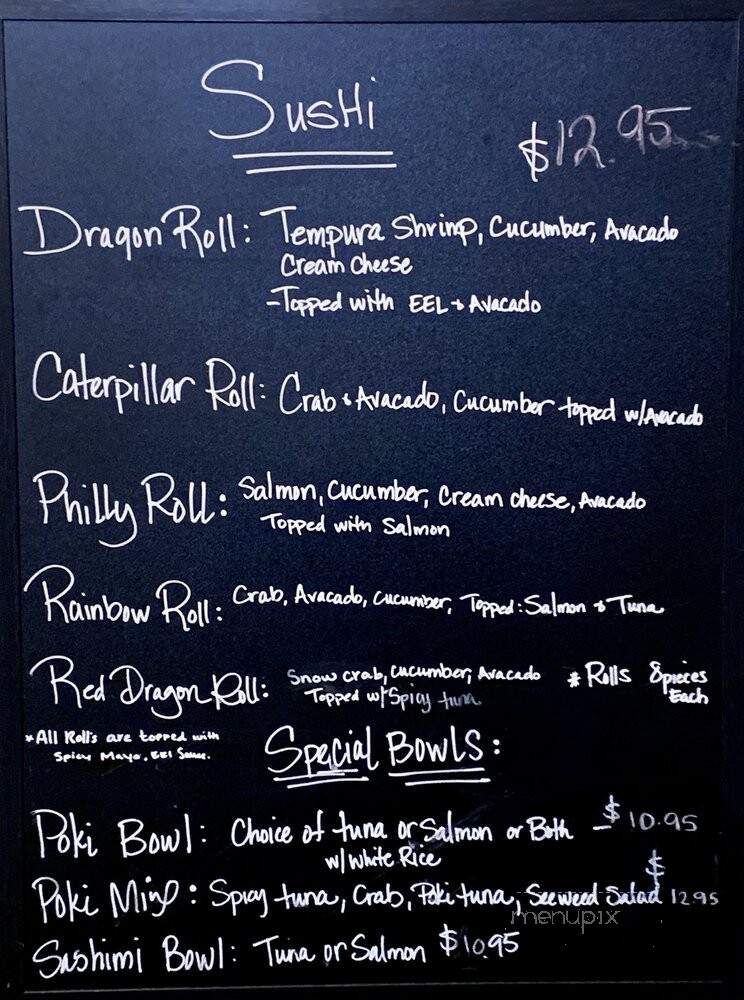 SusHi
$12.95
Dragon Roll: Tempura Shrimp, Cucumber, Avacado
Cream Cheese
-Topped with EEL + Avacado
Caterpillar Roll: Crab & Avacado, Cucumber topped w/Avacado
Philly Roll: Salmon, Cucumber, Cream cheese, Avacado
Topped with Salmon
Rainbow Roll: Crab, Avacado, cucumber, Topped: Salmon & Tuna
Red Dragon Roll: Snow crab, cucumber, Avacado * Rolls 8 pieces
Topped w/ Spicy tuna Each
*All Roll's are topped with
Spicy Mayo, EEl Sauce.
Special BOWLS:
Poki Bowl: Choice of tuna or Salmon or Both - $10.95
w/ White Rice
Poki Mix: Spicy tuna, Crab, Poki tuna, Seeweed Salad $12.95
menupix
Sashimi Bowl: Tuna or Salmon $10.95